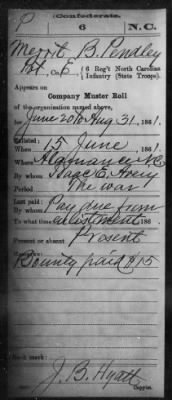 P
Confederate.
6 N.C.
Merrit B. Pendley
Pvt, Co. E, 6 Reg't North Carolina
Infantry (State Troops).
Appears on
Company Muster Roll
of the organization named above,
for June 20 to Aug 31, 1861.
Enlisted:
When 15 June, 1861.
Where Alamance N.C.
By whom Isaac E. Avery
Period The war
Last paid:
By whom Pay due from
To what time enlistment, 186
Present or absent Present
Remarks:
Bounty paid $15
Book mark:
J. B. Hyatt
Copyist.